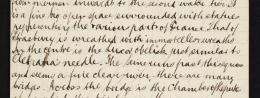 now market inwards to the second water tier. It
is a fine big open space surrounded with statues
representing the various parts of France. That of
Strasburg is wreathed with immortelles wreaths
In the centre is the Luxor obelisk just similar to
Cleopatras needle. The Seine runs past this square
and seems a fine clear river, there are many
bridges. Across the bridge is the Chamber of Depute